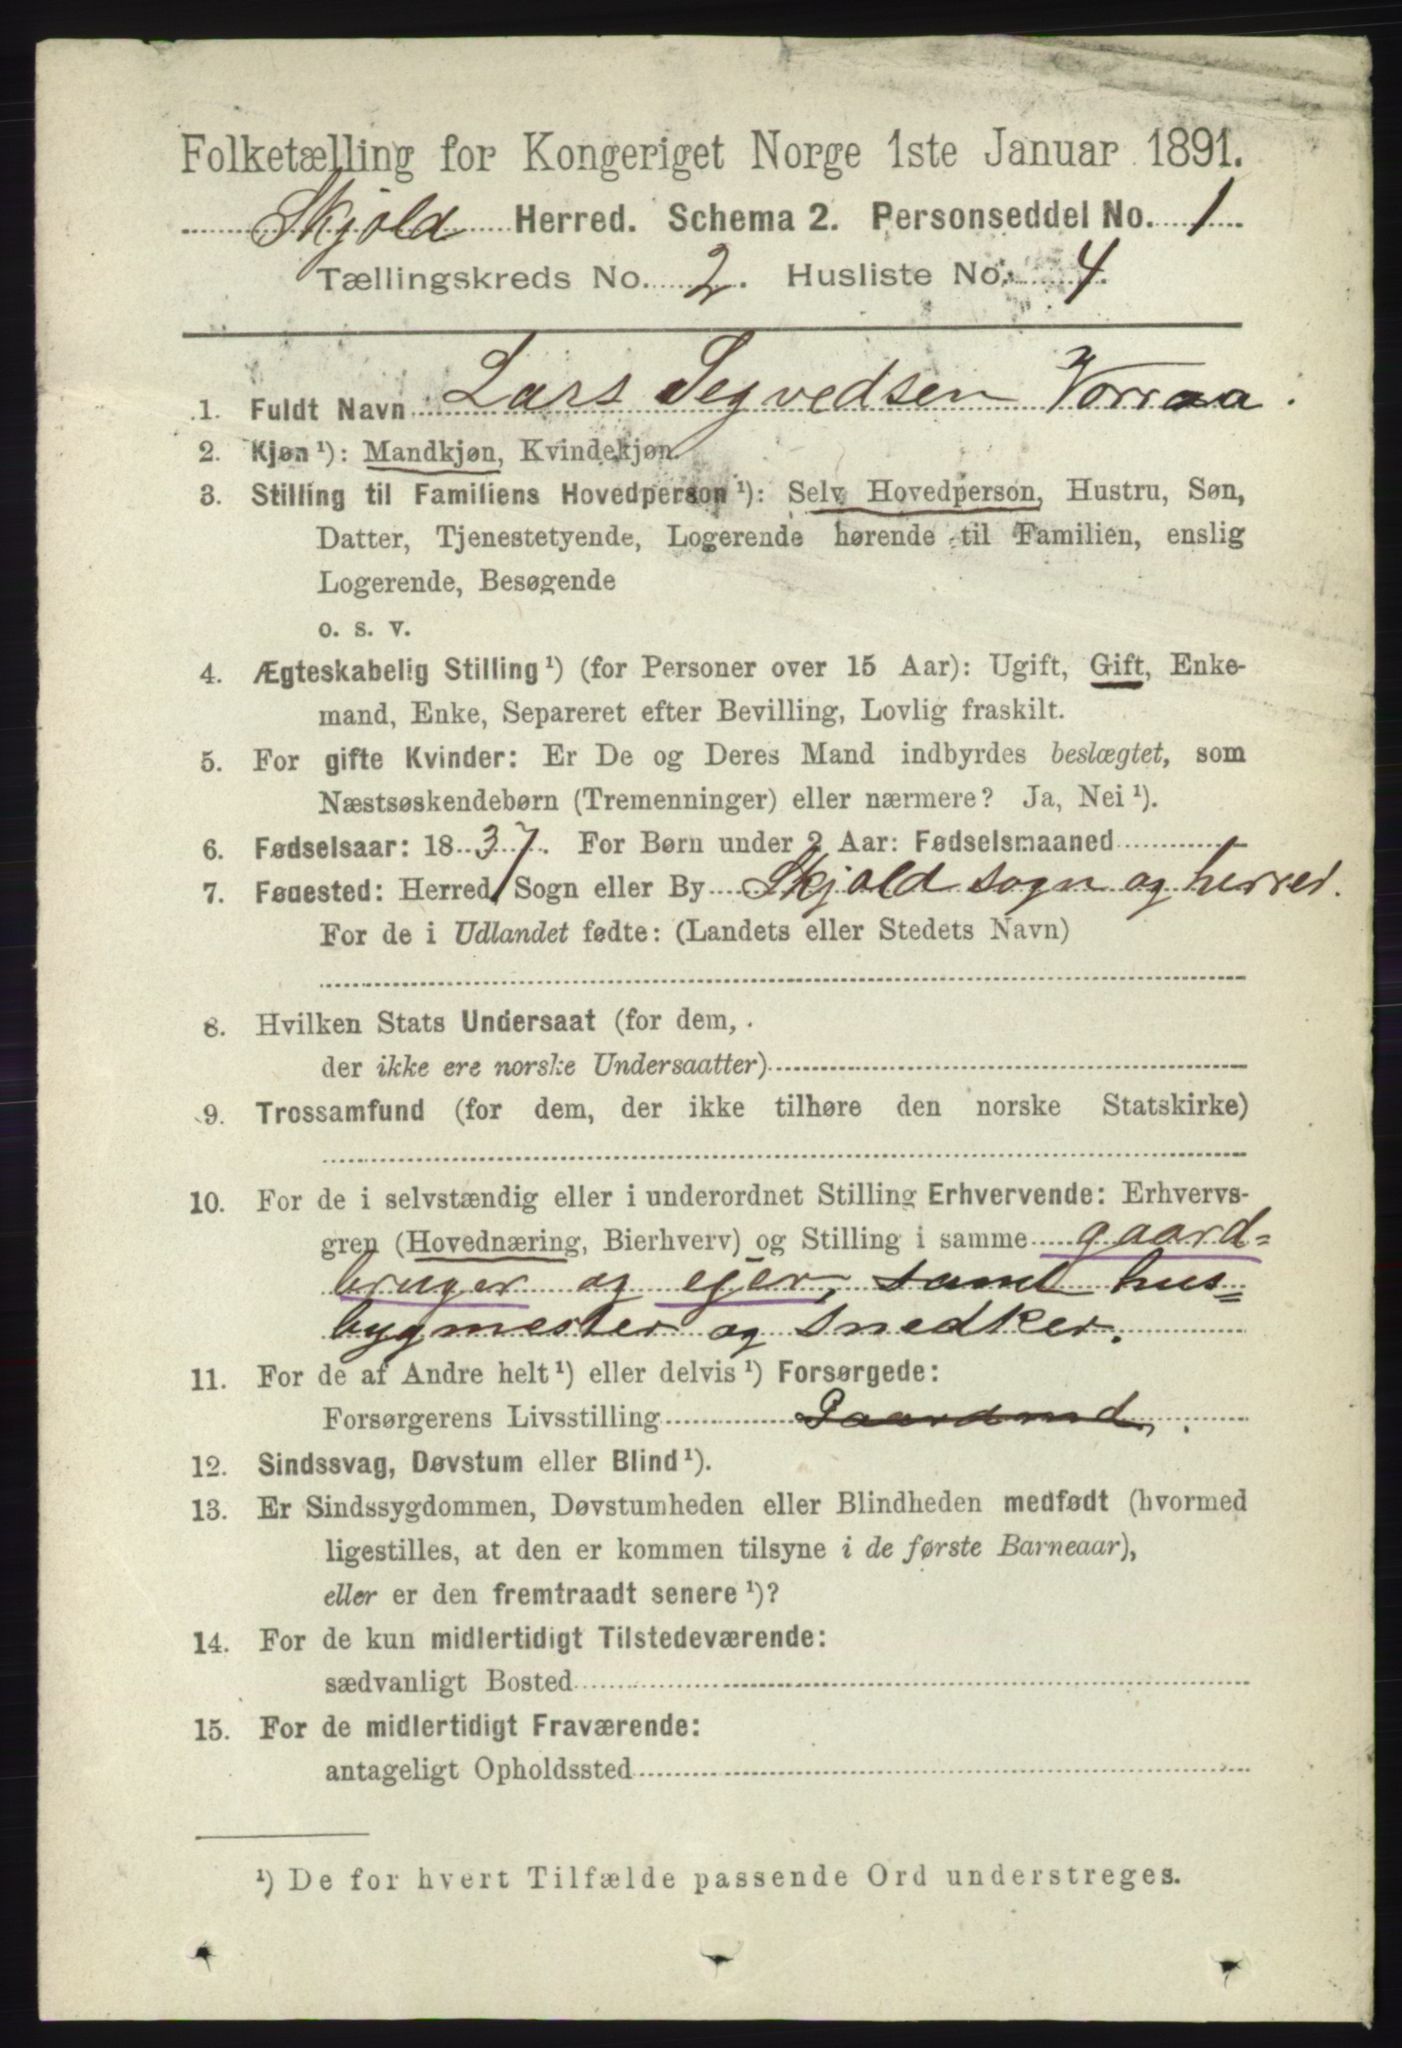 Folketælling for Kongeriget Norge 1ste Januar 1891.
Skjold Herred. Schema 2. Personseddel No. 1
Tællingskreds No. 2. Husliste No. 4.
1. Fuldt Navn Lars Segvedsen Vorraa.
2. Kjøn ¹): Mandkjøn, Kvindekjøn.
3. Stilling til Familiens Hovedperson ¹): Selv Hovedperson, Hustru, Søn,
Datter, Tjenestetyende, Logerende hørende til Familien, enslig
Logerende, Besøgende
o. s. v.
4. Ægteskabelig Stilling ¹) (for Personer over 15 Aar): Ugift, Gift, Enke-
mand, Enke, Separeret efter Bevilling, Lovlig fraskilt.
5. For gifte Kvinder: Er De og Deres Mand indbyrdes beslægtet, som
Næstsøskendebørn (Tremenninger) eller nærmere? Ja, Nei ¹).
6. Fødselsaar: 1837. For Børn under 2 Aar: Fødselsmaaned
7. Fødested: Herred, Sogn eller By Skjold sogn og herred.
For de i Udlandet fødte: (Landets eller Stedets Navn)
8. Hvilken Stats Undersaat (for dem,
der ikke ere norske Undersaatter)
9. Trossamfund (for dem, der ikke tilhøre den norske Statskirke)
10. For de i selvstændig eller i underordnet Stilling Erhvervende: Erhvervs-
gren (Hovednæring, Bierhverv) og Stilling i samme gaard=
bruger og ejer, samt hus=
bygmester og snedker.
11. For de af Andre helt ¹) eller delvis ¹) Forsørgede:
Forsørgerens Livsstilling
12. Sindssvag, Døvstum eller Blind ¹).
13. Er Sindssygdommen, Døvstumheden eller Blindheden medfødt (hvormed
ligestilles, at den er kommen tilsyne i de første Barneaar),
eller er den fremtraadt senere ¹)?
14. For de kun midlertidigt Tilstedeværende:
sædvanligt Bosted
15. For de midlertidigt Fraværende:
antageligt Opholdssted
¹) De for hvert Tilfælde passende Ord understreges.